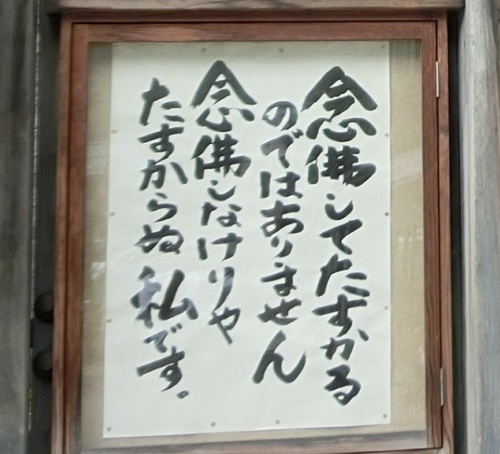 念佛してたすかる
のではありません
念佛しなけりゃ
たすからぬ私です。